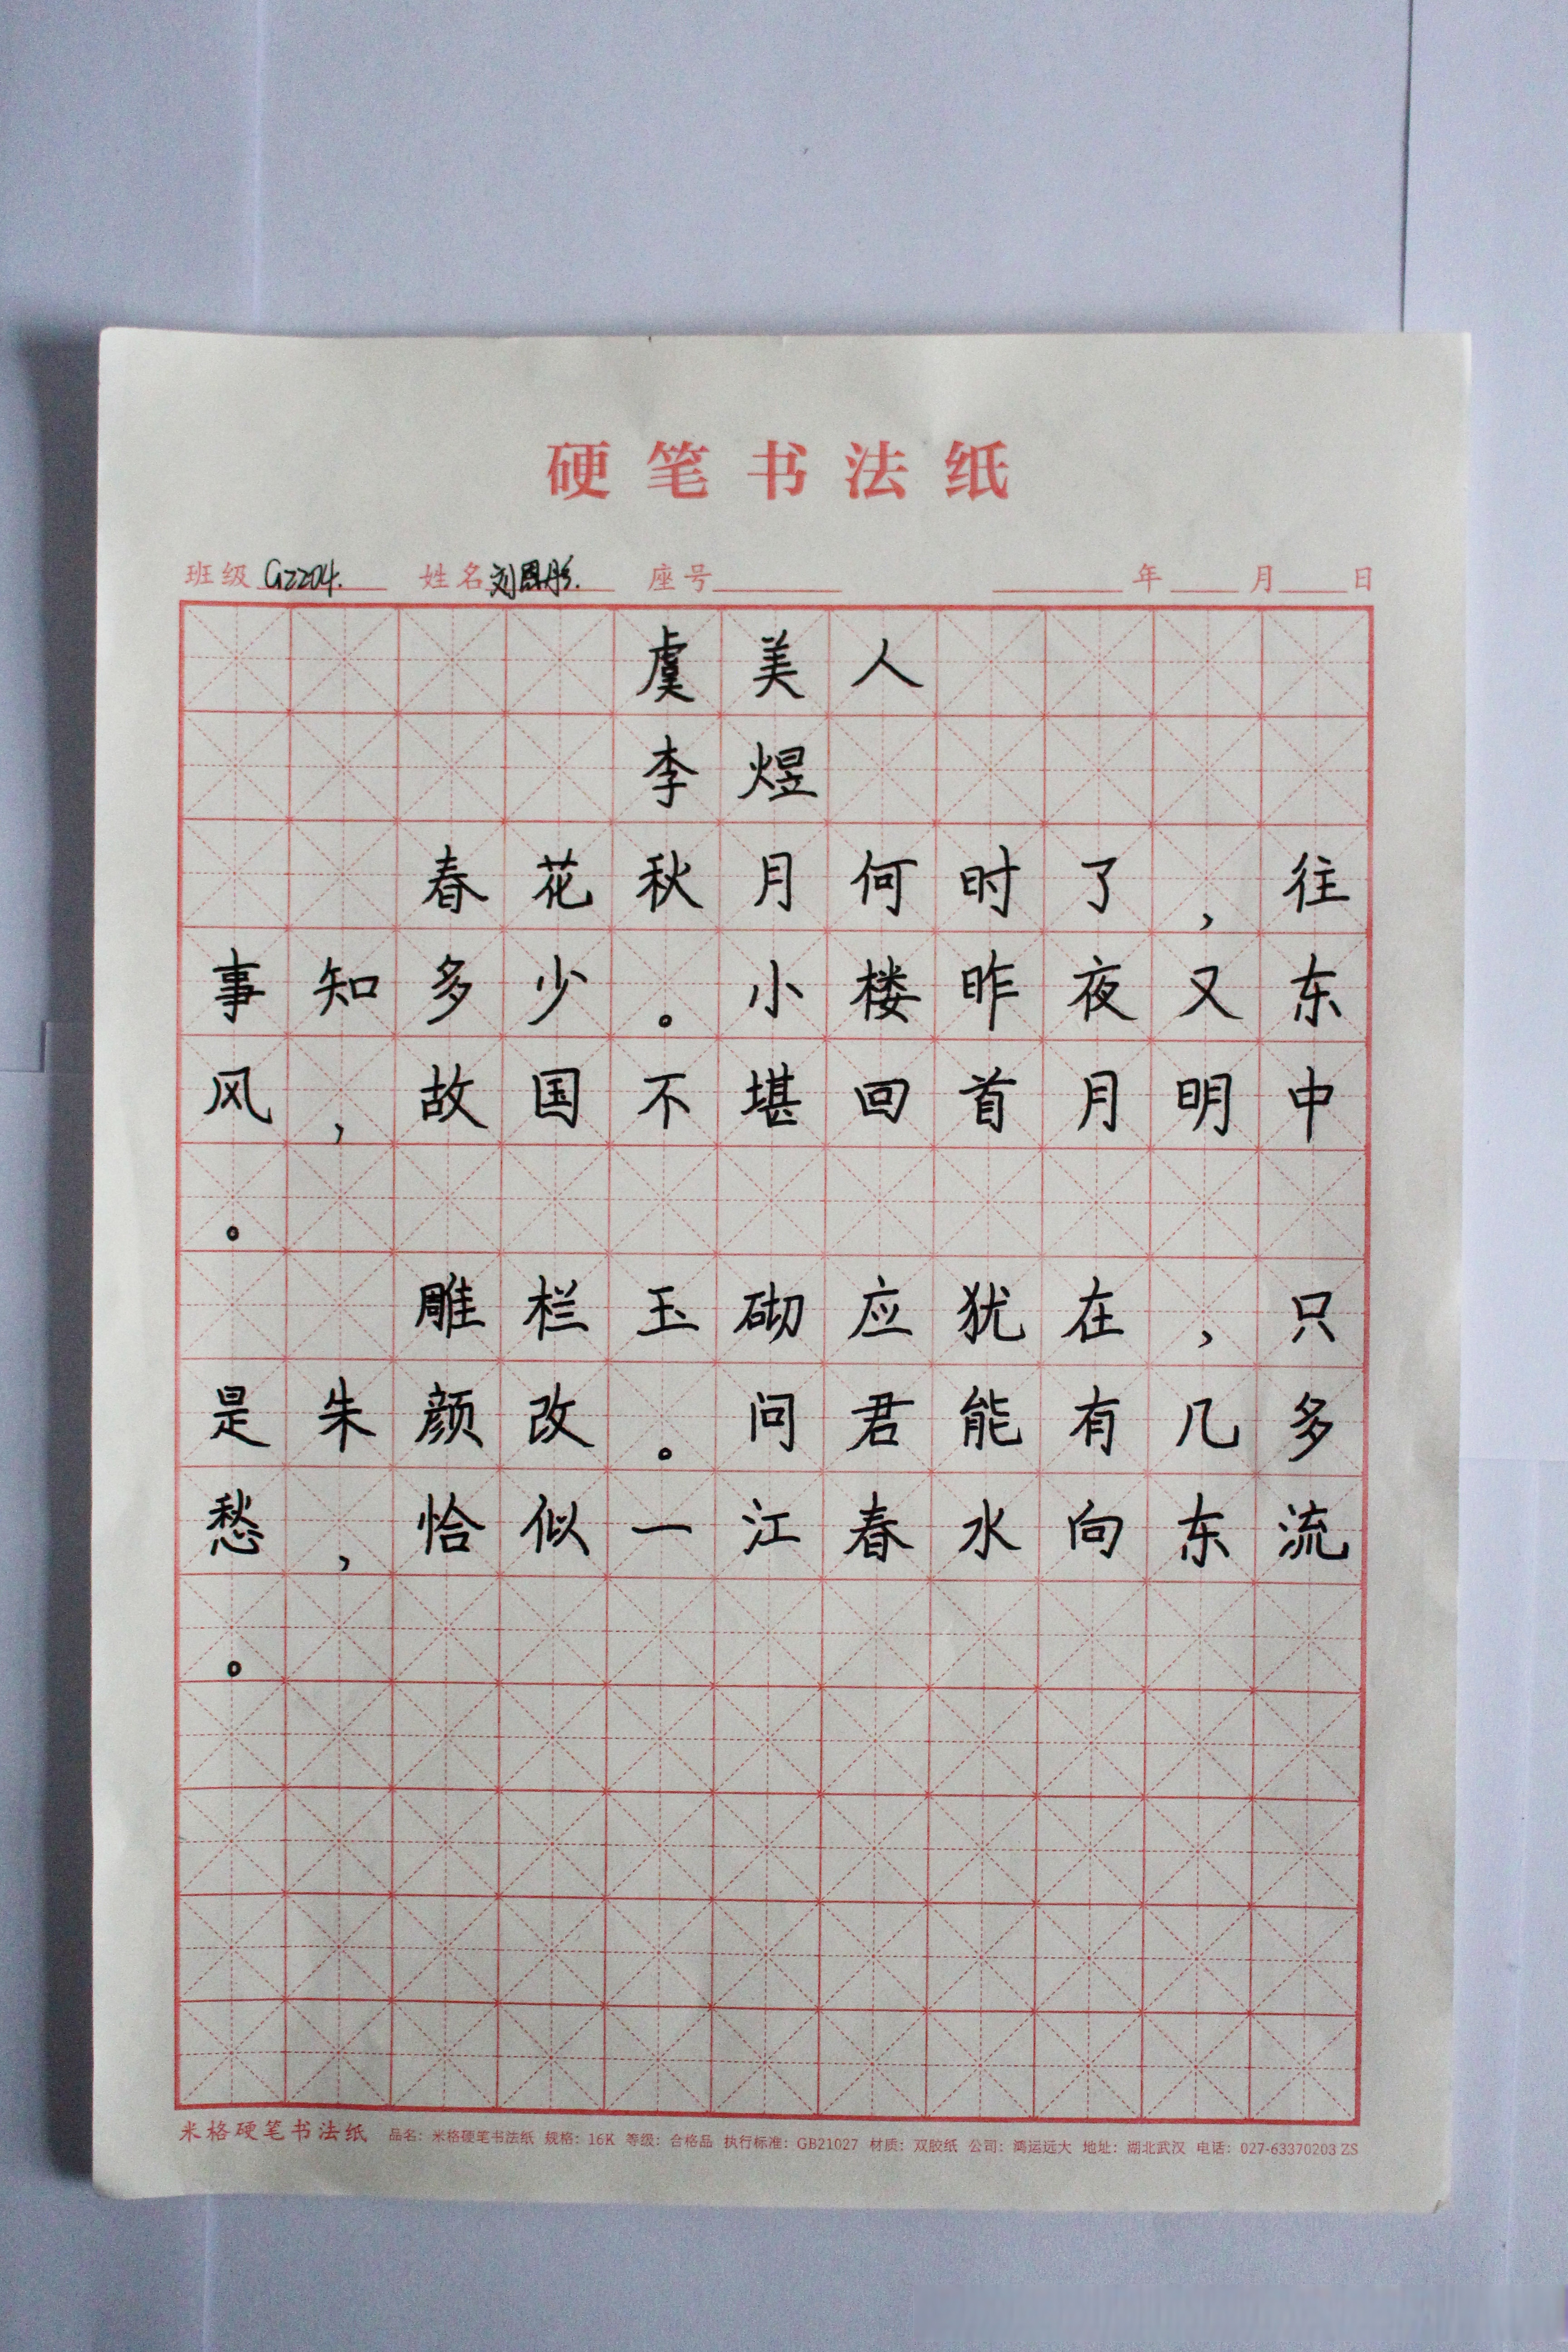 硬笔书法纸
班级 GZ204. 姓名 刘恩彤. 座号 年 月 日
虞美人
李煜
春花秋月何时了，往
事知多少。小楼昨夜又东
风，故国不堪回首月明中
。
雕栏玉砌应犹在，只
是朱颜改。问君能有几多
愁，恰似一江春水向东流
。
米格硬笔书法纸 品名：米格硬笔书法纸 规格：16K 等级：合格品 执行标准：GB21027 材质：双胶纸 公司：鸿运远大 地址：湖北武汉 电话：027-63370203 ZS